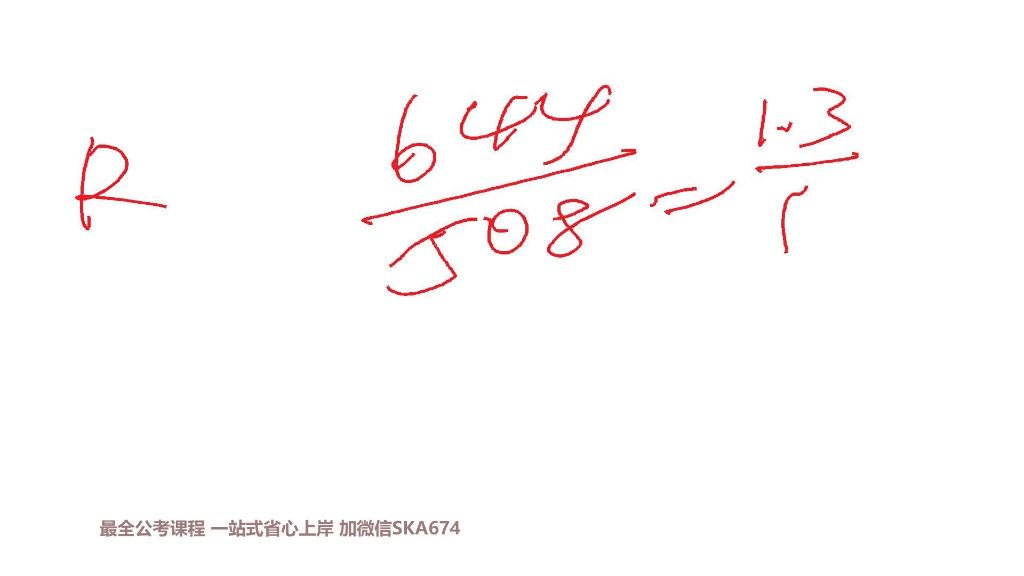 R 644/508 = 1.3/1
最全公考课程 一站式省心上岸 加微信SKA674